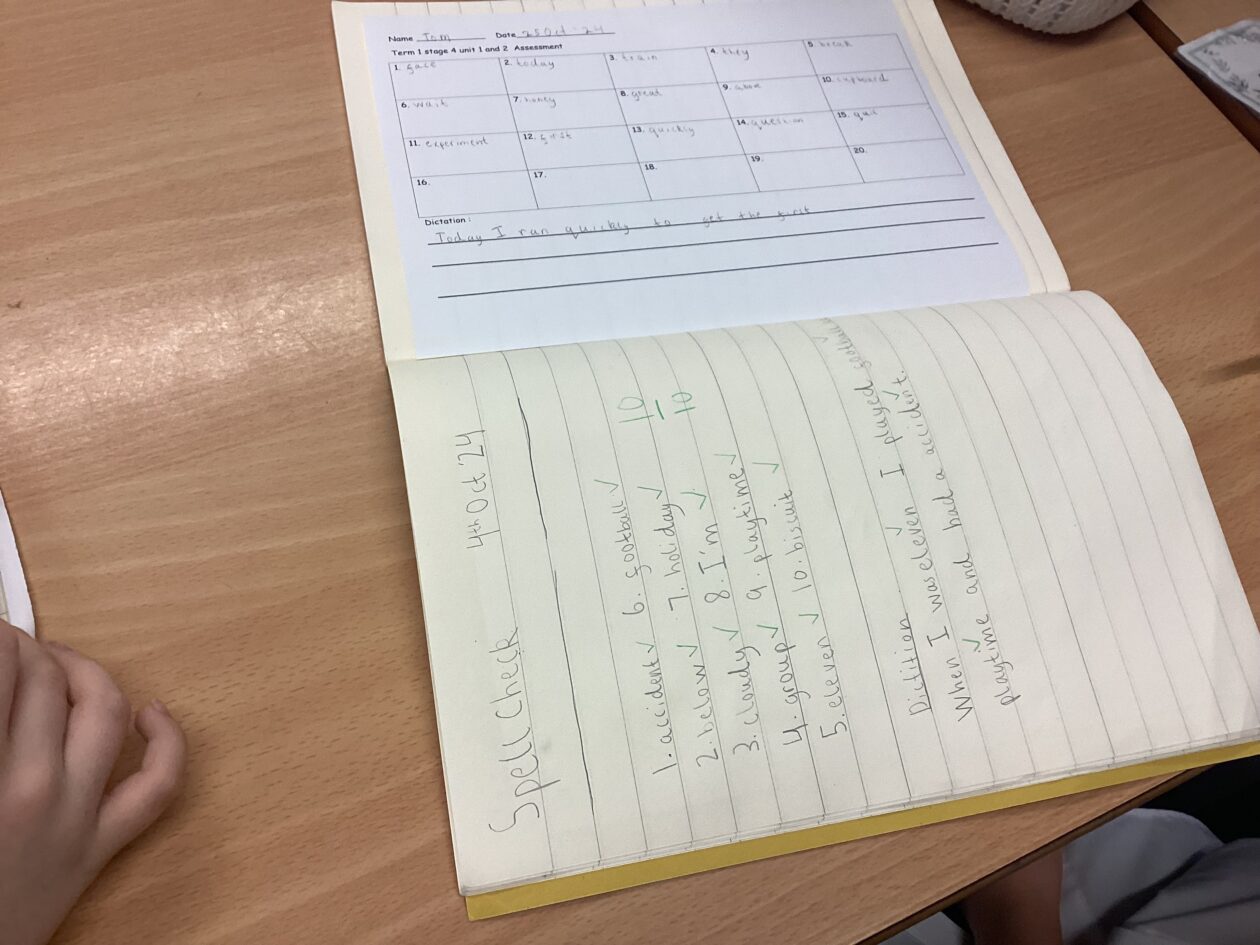 Name Tom Date 25 Oct - 24
Term 1 stage 4 unit 1 and 2 Assessment
1. face 2. today 3. train 4. they 5. break
6. wait 7. honey 8. great 9. above 10. cupboard
11. experiment 12. first 13. quickly 14. question 15. quit
16. 17. 18. 19. 20.
Dictation :
Today I ran quickly to get the first
Spell Check 4th Oct '24
1. accident ✓ 6. football ✓ 10
2. below ✓ 7. holiday ✓ 10
3. cloudy ✓ 8. I'm ✓
4. group ✓ 9. playtime ✓
5. eleven ✓ 10. biscuit ✓
Dictition
When I was eleven I played football
playtime and had a accident.